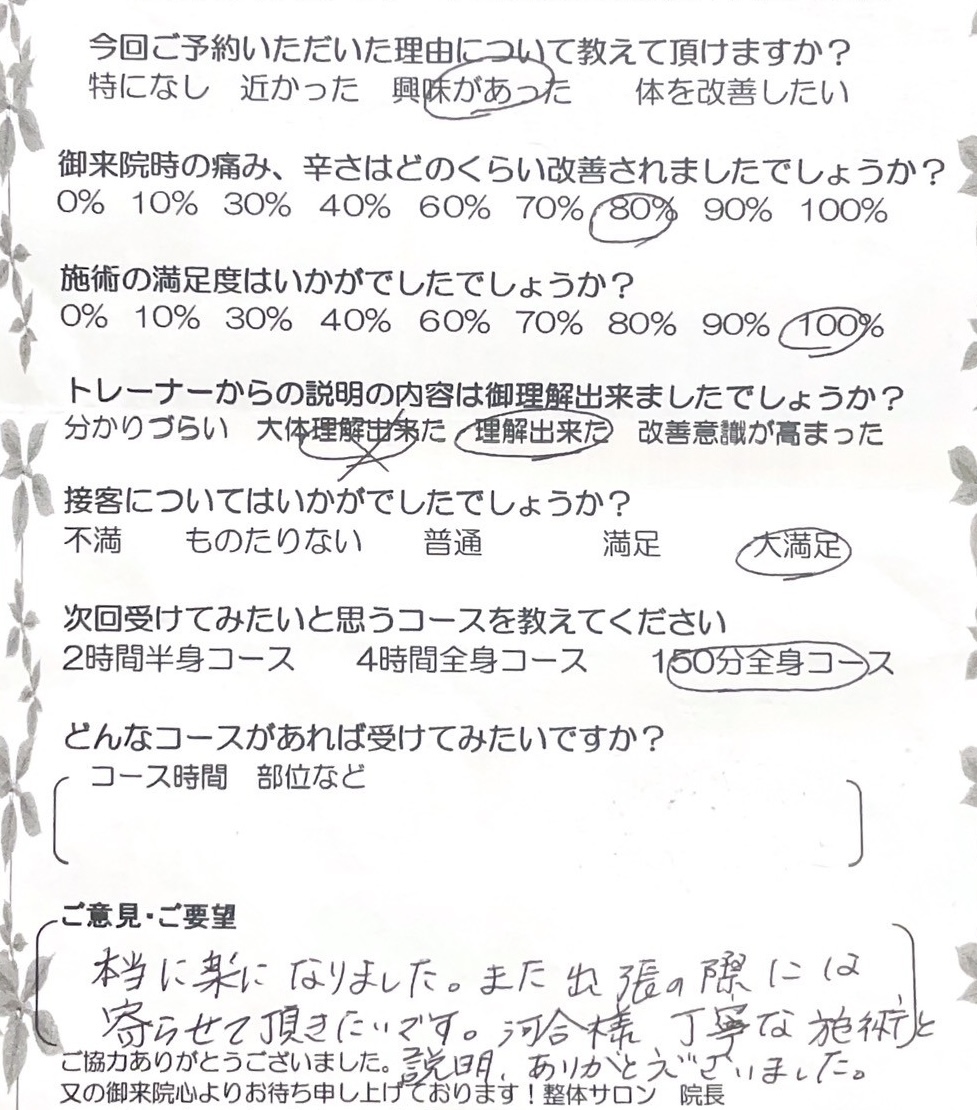 今回ご予約いただいた理由について教えて頂けますか？
特になし 近かった 興味があった 体を改善したい
御来院時の痛み、辛さはどのくらい改善されましたでしょうか？
0% 10% 30% 40% 60% 70% 80% 90% 100%
施術の満足度はいかがでしたでしょうか？
0% 10% 30% 40% 60% 70% 80% 90% 100%
トレーナーからの説明の内容は御理解出来ましたでしょうか？
分かりづらい 大体理解出来た 理解出来た 改善意識が高まった
接客についてはいかがでしたでしょうか？
不満 ものたりない 普通 満足 大満足
次回受けてみたいと思うコースを教えてください
2時間半身コース 4時間全身コース 150分全身コース
どんなコースがあれば受けてみたいですか？
コース時間 部位など
ご意見・ご要望
本当に楽になりました。また出張の際には
寄らせて頂きたいです。河合様 丁寧な施術と
説明、ありがとうございました。
ご協力ありがとうございました。
又の御来院心よりお待ち申し上げております！整体サロン 院長